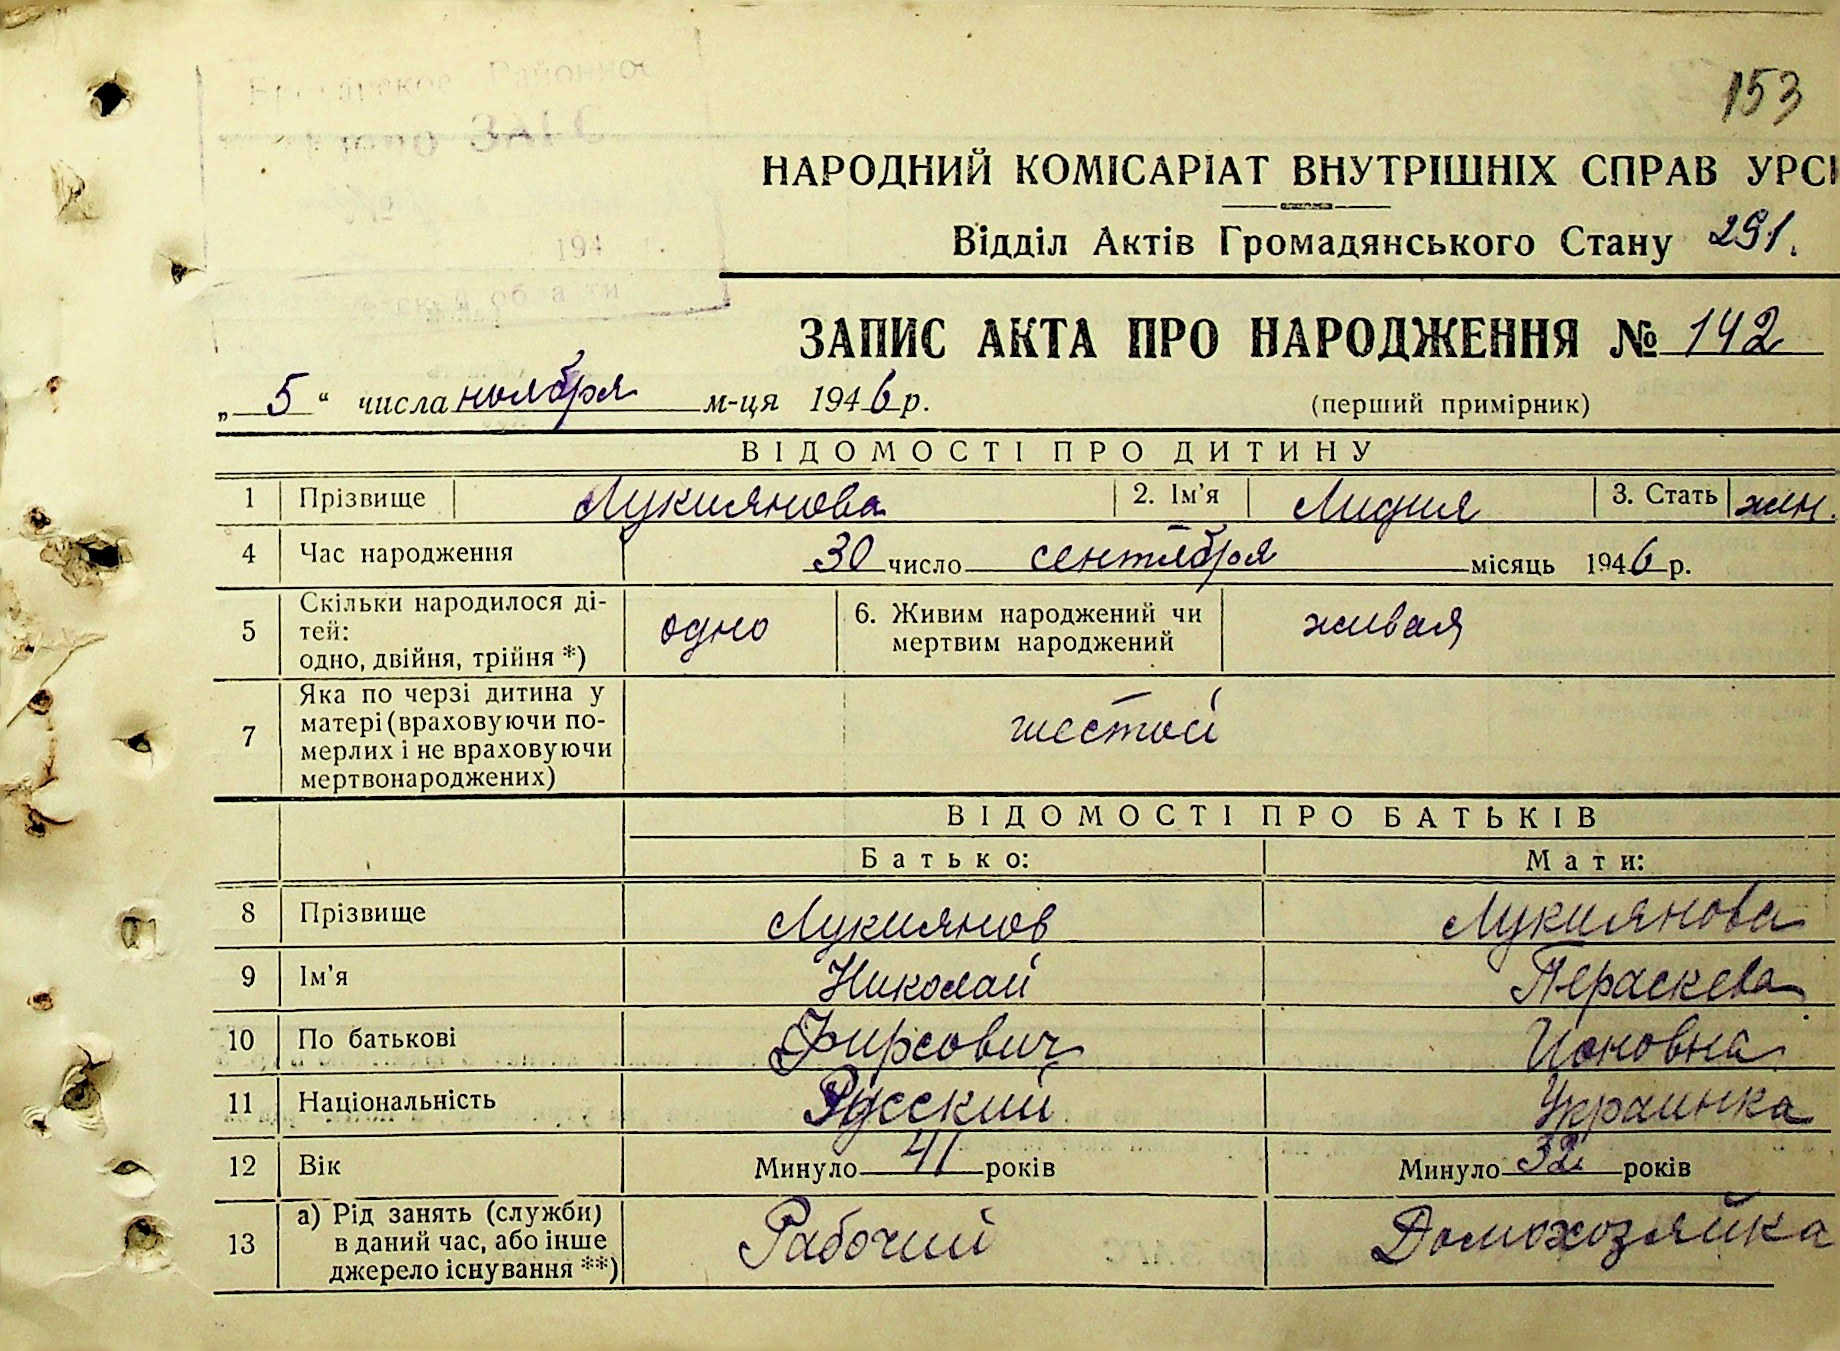 Районное
ЗАГС
194 г.
области
153
НАРОДНИЙ КОМІСАРІАТ ВНУТРІШНІХ СПРАВ УРСР
Відділ Актів Громадянського Стану 291.
ЗАПИС АКТА ПРО НАРОДЖЕННЯ № 142
„5“ числа ноября м-ця 1946 р. (перший примірник)
ВІДОМОСТІ ПРО ДИТИНУ
1 Прізвище Лукиянова 2. Ім'я Лидия 3. Стать жен.
4 Час народження 30 число сентября місяць 1946 р.
5 Скільки народилося ді-
тей:
одно, двійня, трійня *) одно 6. Живим народжений чи
мертвим народжений живая
7 Яка по черзі дитина у
матері (враховуючи по-
мерлих і не враховуючи
мертвонароджених) шестой
ВІДОМОСТІ ПРО БАТЬКІВ
Батько: Мати:
8 Прізвище Лукиянов Лукиянова
9 Ім'я Николай Пераскева
10 По батькові Фирсович Ионовна
11 Національність Русский Украинка
12 Вік Минуло 41 років Минуло 32 років
13 а) Рід занять (служби)
в даний час, або інше
джерело існування **) Рабочий Домохозяйка